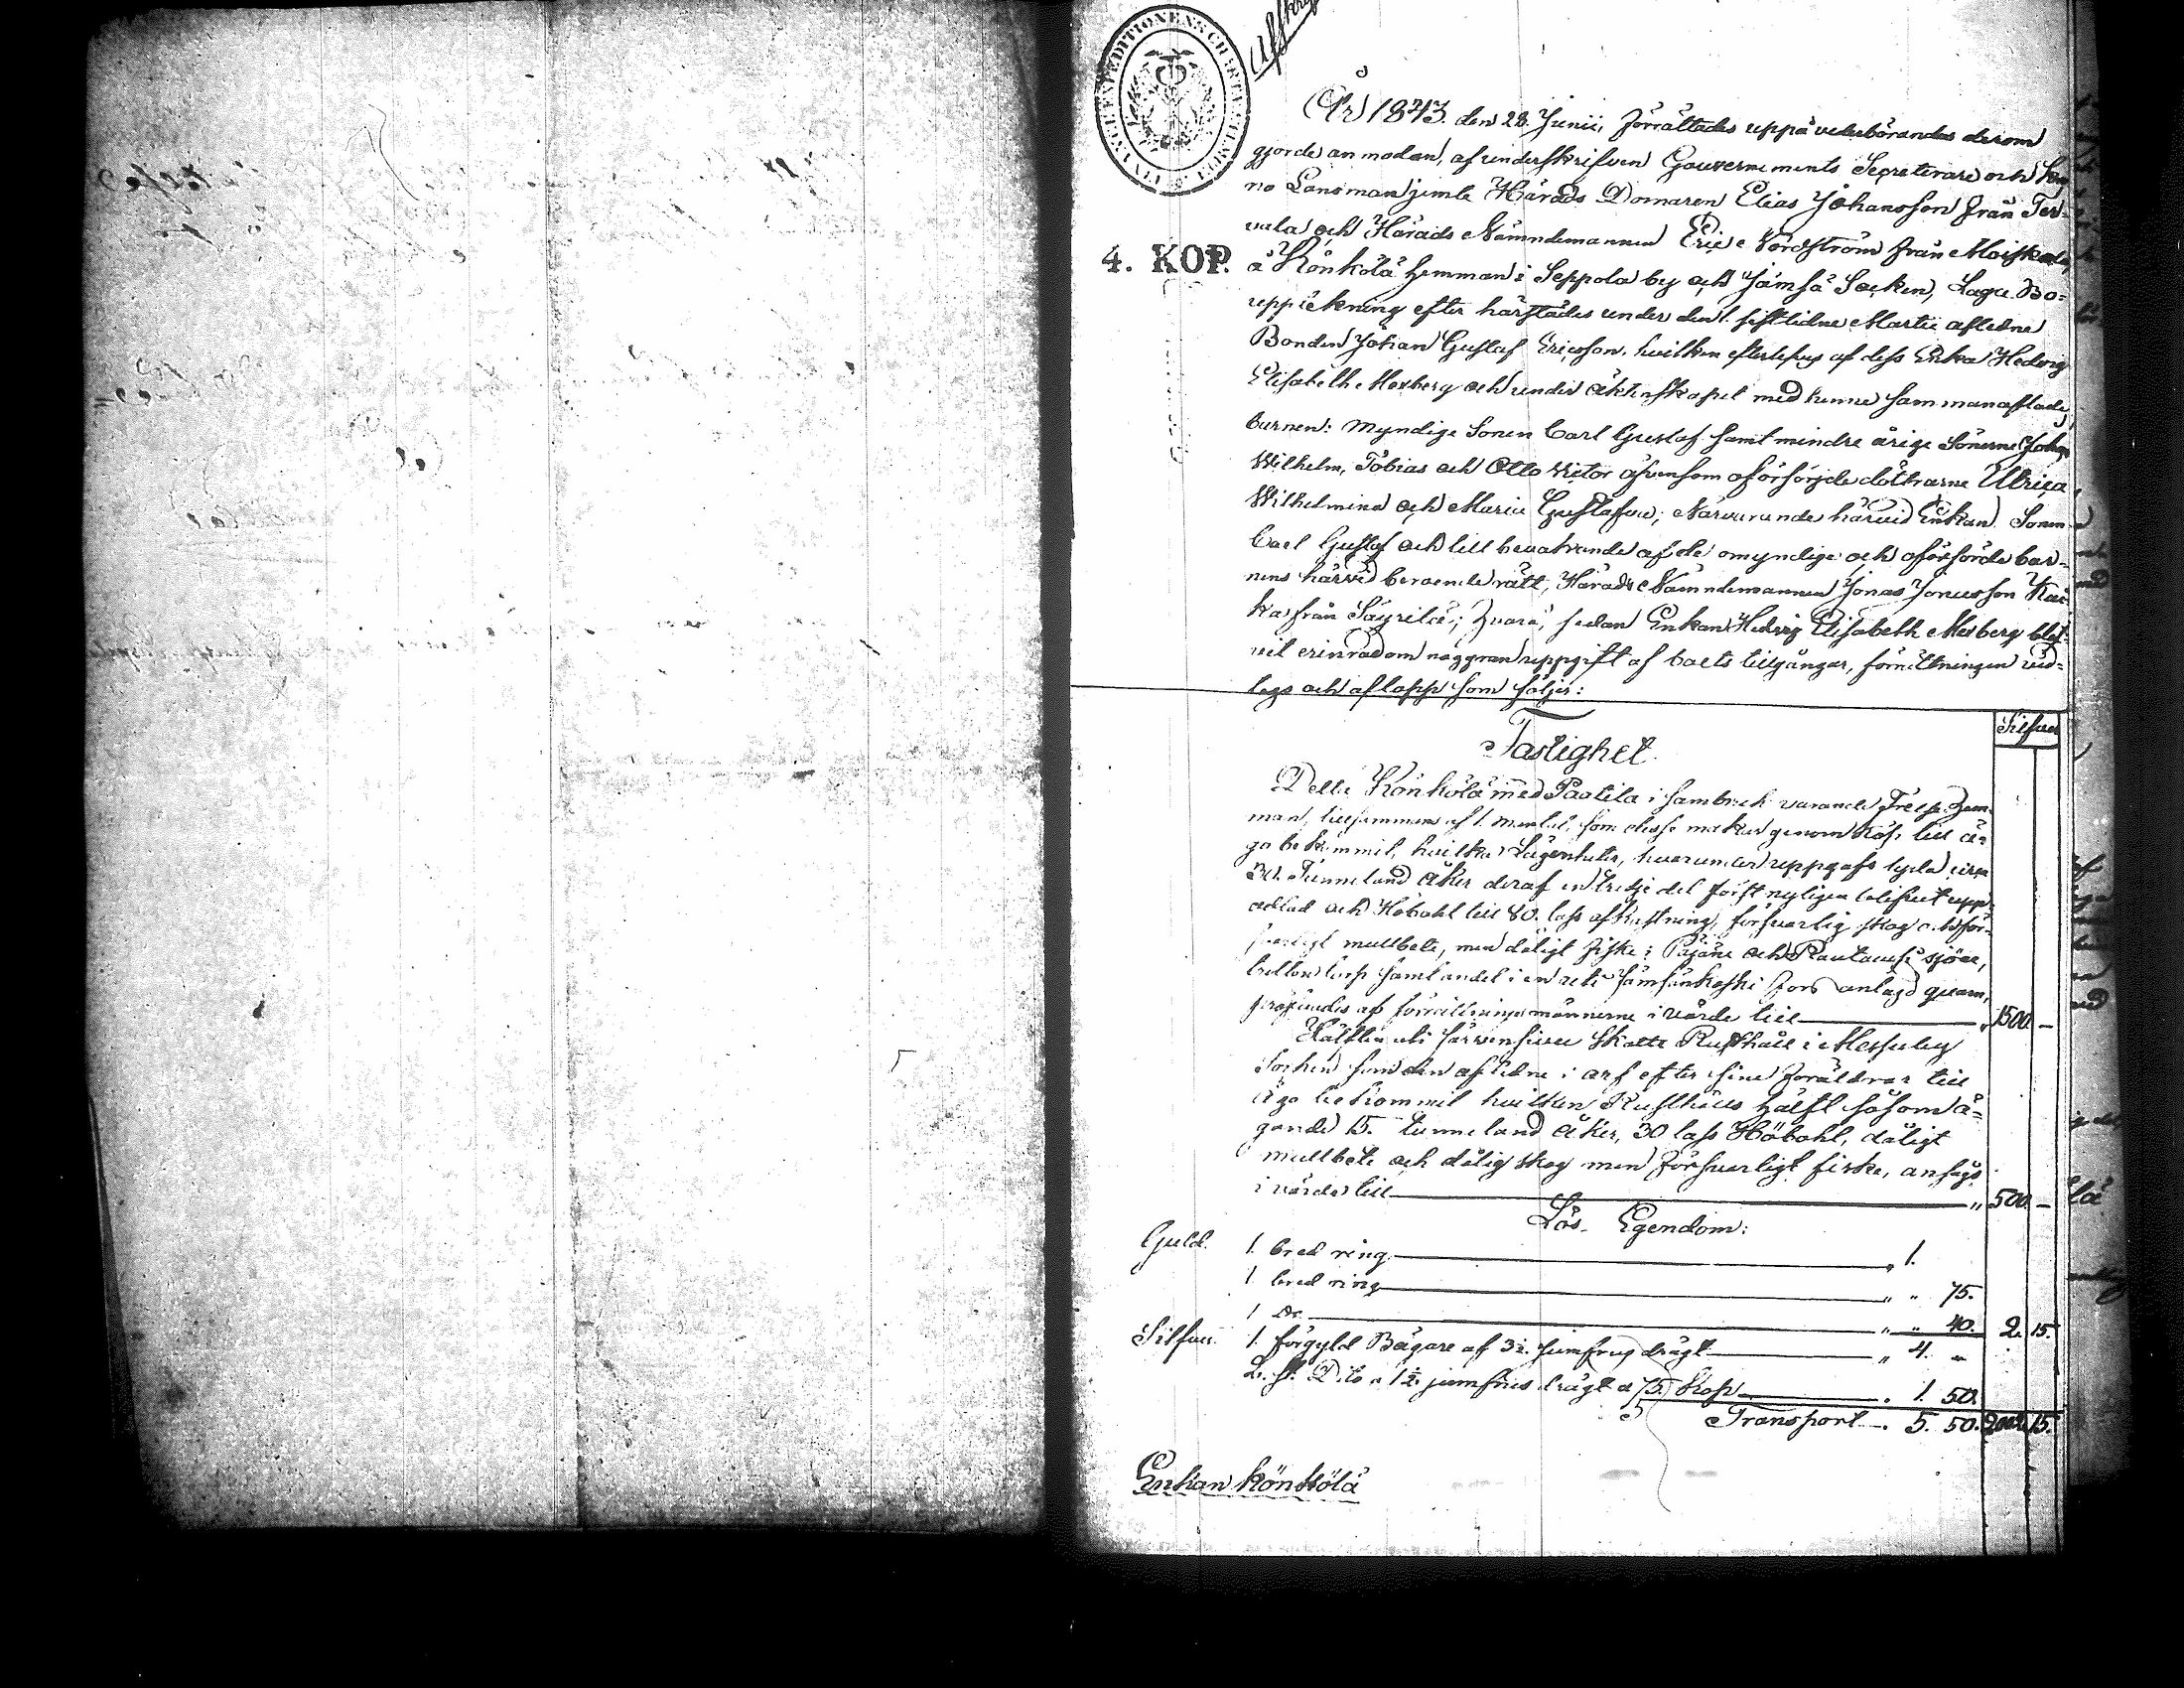 Afskrift
År 1843. den 28. Junii, förrättades uppå vederbörandes derom
gjorde anmodan, af underskrifven Gouvernements Secreterare och Kro
no Länsman jemte Härads Domaren Elias Johansson från Ter-
vala och Härads Nämndemannen Eric Nordström från
4. KOP.
å Könkölä hemman i Seppola by och Jämsä Socken, Laga Bo-
uppteckning efter härstädes under den 1. sistlidne Martii aflidne
Bonden Johan Gustaf Ericsson, hvilken efterlefves af dess Enka Hedvig
Elisabeth Mexberg och under äktenskapet med henne sammanaflade
barnen: Myndige Sonen Carl Gustaf samt mindreårige Sönerne Johan
Wilhelm, Tobias och Otto Victor äfvensom oförsörjde döttrarne Ulrica
Wilhelmina och Maria Gustafva; Närvarande härvid Enkan, Sonen
Carl Gustaf och till bevakande af de omyndige och oförsörde bar-
nens härvid beroende rätt, Härads Nämndemannen Jonas Jonasson
ka från Säyrilä; hvarå, sedan Enkan Hedvig Elisabeth Mexberg blif-
vit erinrad om noggran uppgift af boets tillgångar, förrättningen vid-
togs och aflopp som följer:
Silfver
Fastighet.
Dette Könkölä med Paatila i sambruk varande Frelse Hem-
man, tillsammans af 1. mantal, som desse makar genom köp till ä-
go bekommit, hvilka Lägenheter, hvarunder uppgafs lyda
30. Tunneland åker deraf en tredje del först nyligen blifvit upp-
odlad och Höbohl till 80. lass afkastning, försvarlig skog och för-
svarligt mullbete, men dåligt fiske i Päjäne och Rautavesi sjöar,
torp samt andel i en uti Jämsänkoski fors anlagd qvarn,
af förrättningsmännerne i värde till " 1500. —
Hälften uti Järvensivu Skatte Rusthåll i Messuby
Socken som den aflidne i arf efter sine föräldrar till
ägo bekommit hvilken Rusthålls hälft såsom ä-
gande 15. tunneland åker, 30 lass Höbohl, dåligt
mullbete och dålig skog men försvarligt fiske, ansågs
i värde till " 500. —
Lös Egendom:
Guld. 1. bred ring " 1.
1 bred ring " " 75.
1 Do " " 40. 2. 15.
Silfver. 1. förgyld Bägare af 3½. jumfrus drägt " 4. "
2. st. Dito " 1½. jumfrus drägt a 75. Kop " 1. 50.
Transport " 5. 50. 2002. 15.
Enkan Könkölä